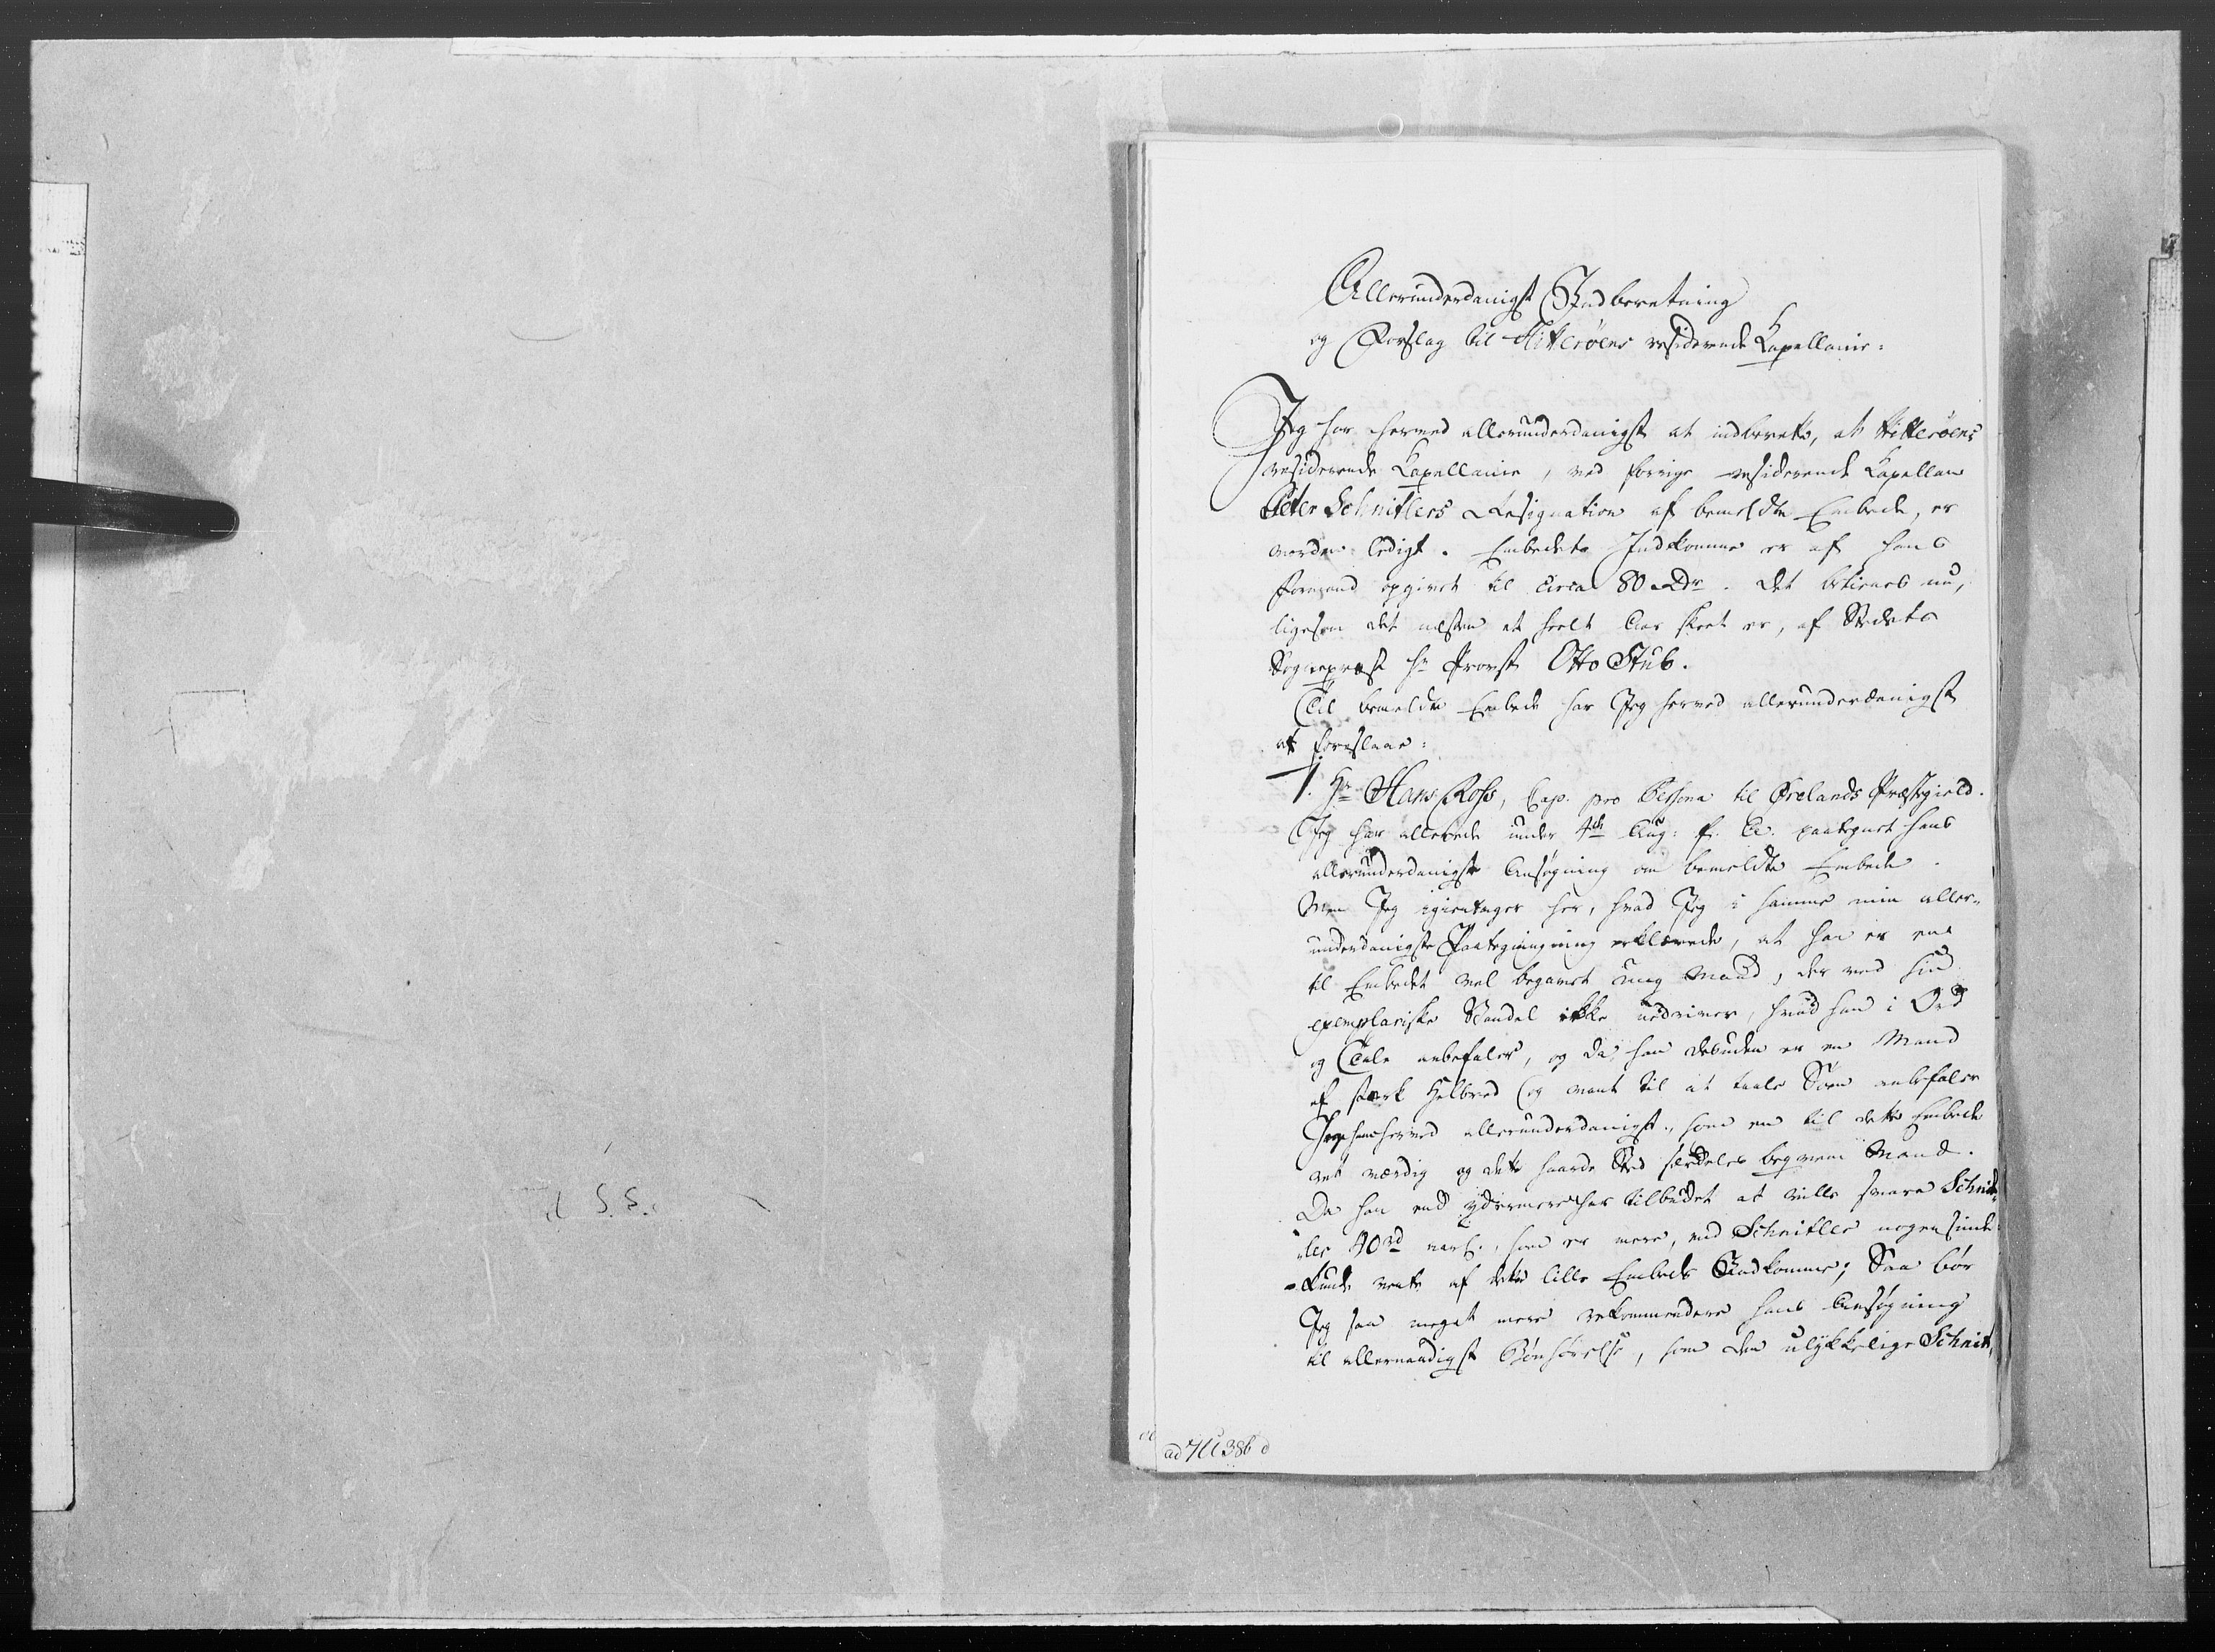 Allerunderdanigst Indberetning
og Forslag til Hitterøens residerende Kapellanie:
Jeg har hermed allerunderdanigst at indberette, at Hitterøens
residerende Kapellanie, ved forrige residerende Kapellan
Peter Schnitlers Resignation af bemeldte Embede, er
vorden ledigt. Embedets Indkomme er af hans
Formand opgivet til circa 80 Rdr. Det betienes nu,
ligesom det næsten et heelt Aar skeet er, af Stedets
Sognepræst Hr Provst Otto Stub.
Til bemeldte Embede har Jeg herved allerunderdanigst
at foreslaae:
1. Hr Hans Ross, Cap. pro Persona til Ørelands Præstegield.
Jeg har allerede under 4de Aug: f. A. paategnet hans
allerunderdanigste Ansøgning om bemeldte Embede.
Men Jeg igientager her, hvad Jeg i samme min aller-
underdanigste Paategning erklærede, at han er en
til Embedet vel begavet ung Mand, der ved sin
exemplariske Vandel ikke nedriver, hvad han i Ord
og Tale anbefaler, og da han desuden er en Mand
af stærk Helbred og vant til at taale Søen anbefaler
Jeg ham herved allerunderdanigst, som en til dette Embede
ret værdig og dette haarde Sted særdeles beqvem Mand.
Da han end ydermere har tilbudet at ville svare Schnit-
ler 40 rd aarl., som er mere, end Schnitler nogensinde
kunde vente af dette lille Embeds Indkomme; Saa bør
Jeg saa meget mere rekommendere hans Ansøgning
til allernaadigst Bønhørelse, som den ulykkelige Schnit-
ad 711386 d
S. S.